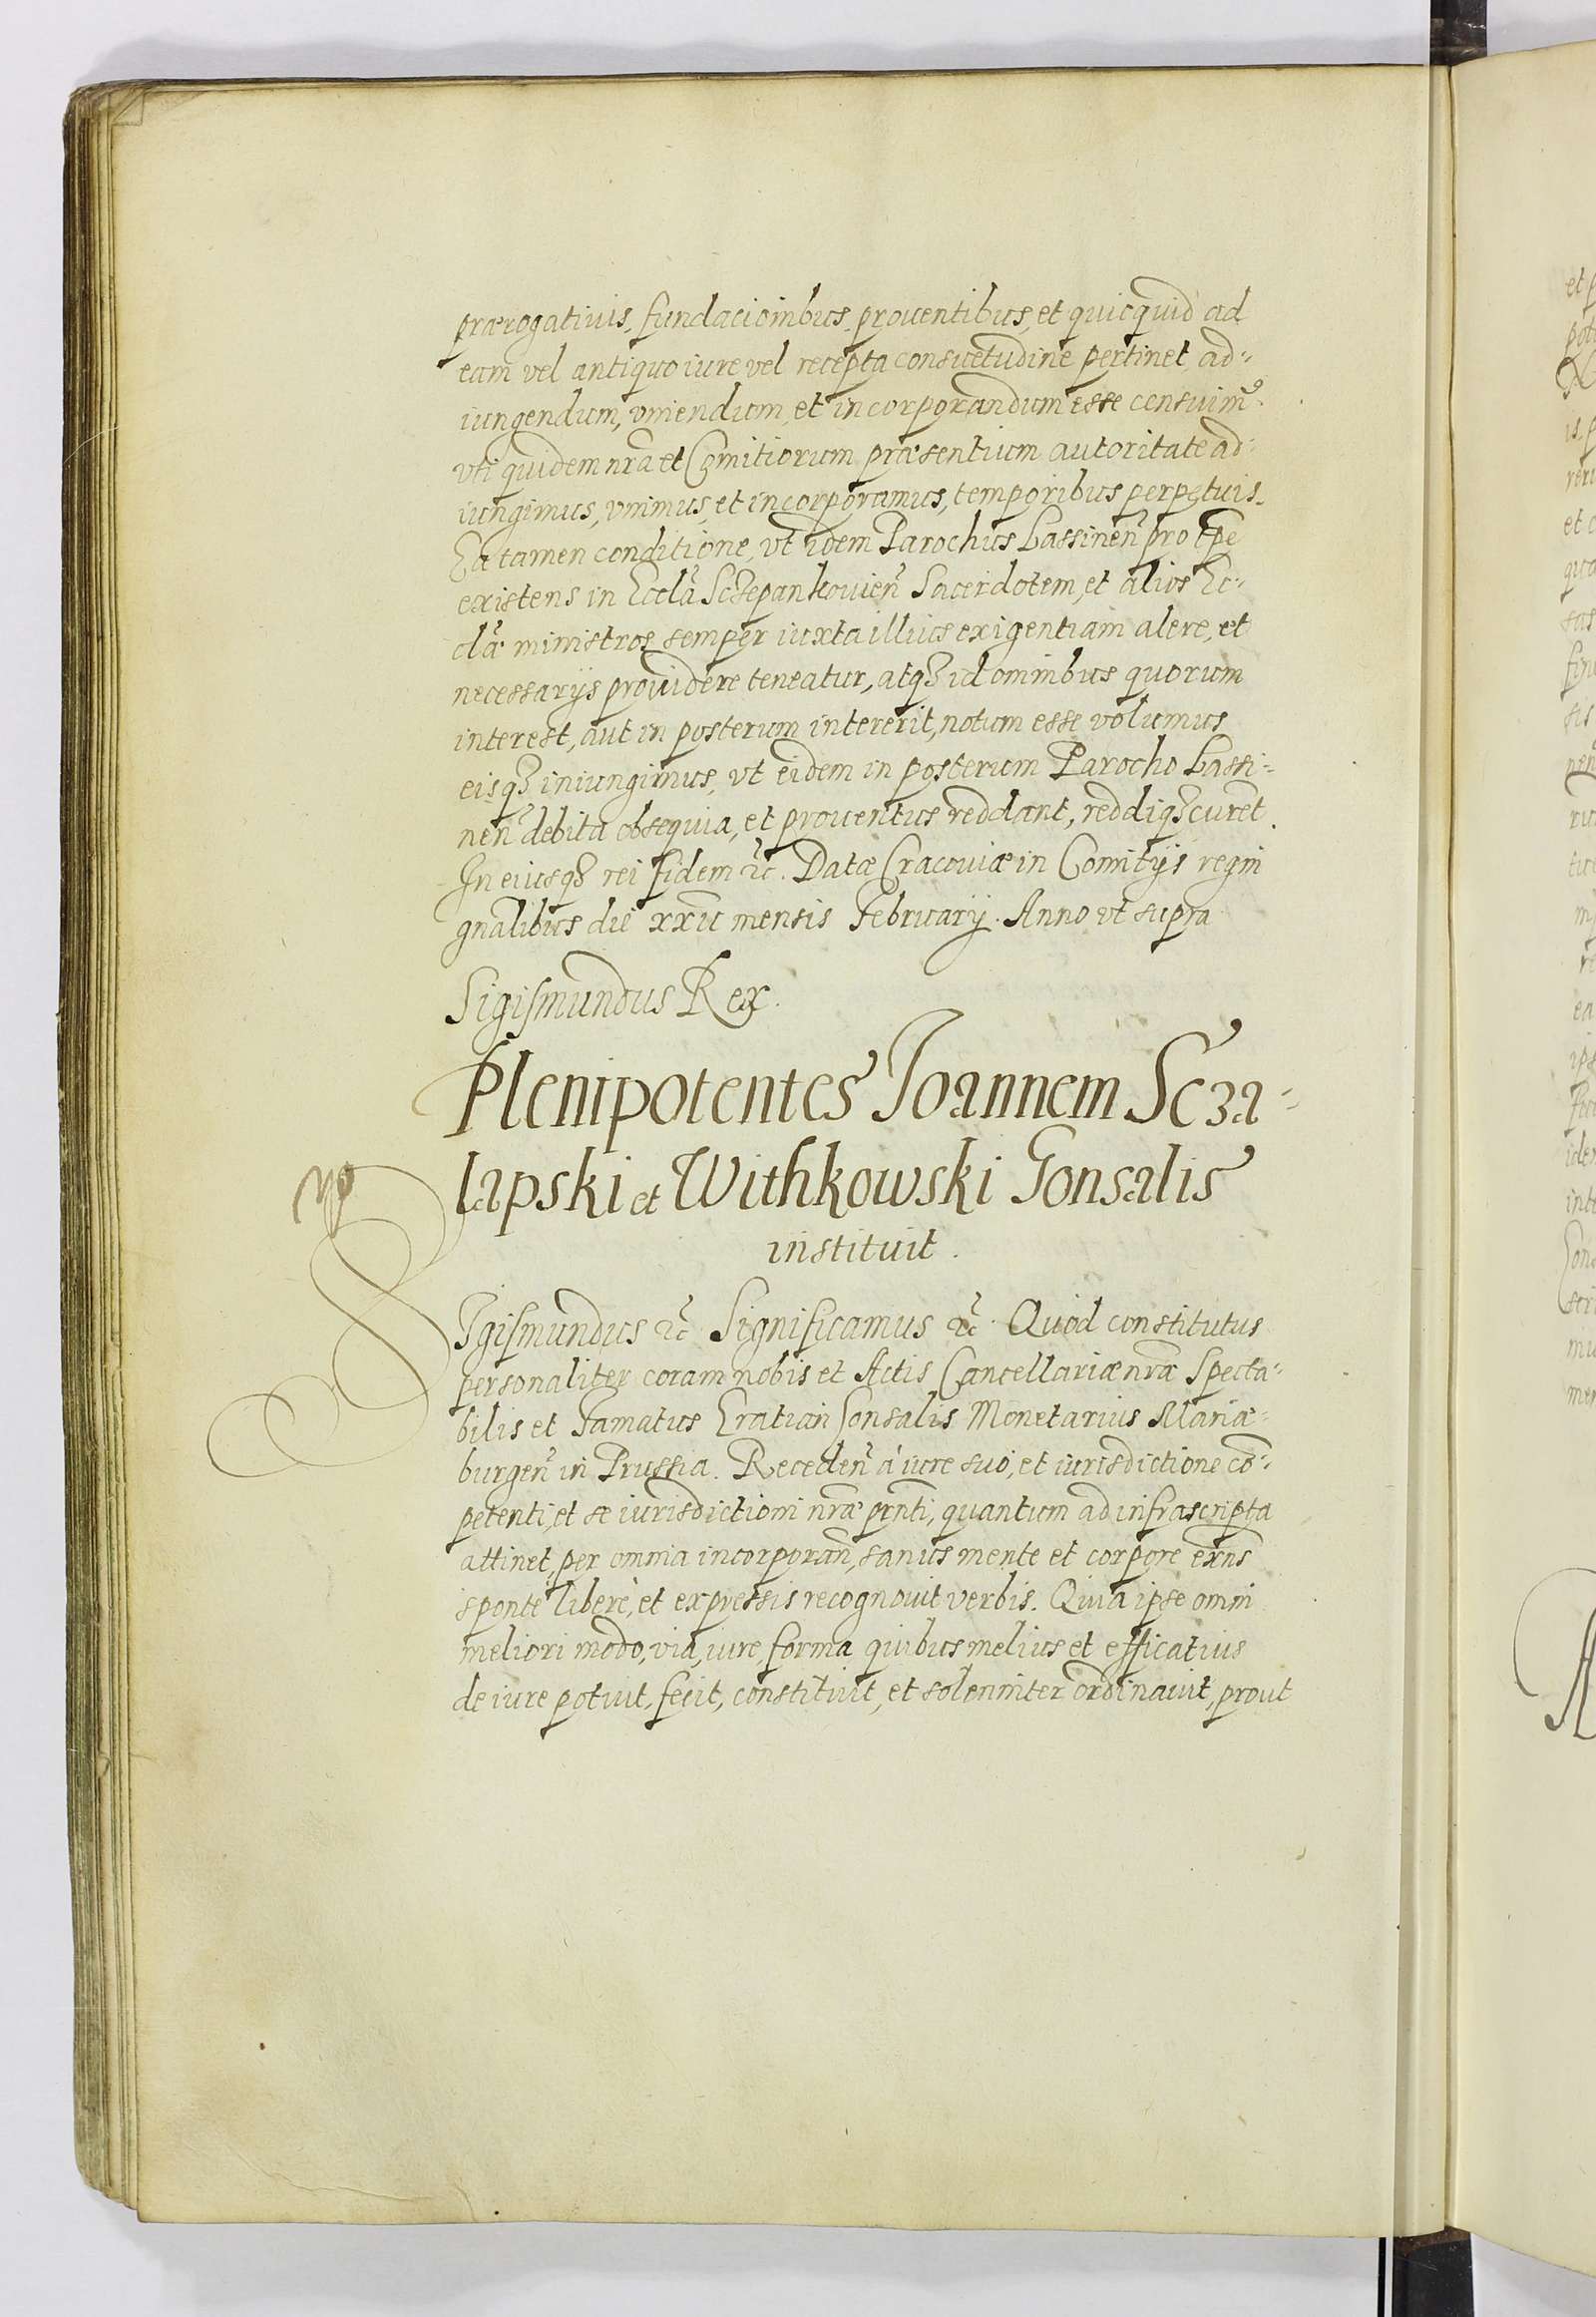 prærogatiuis, fundacioinbus, prouentibus, et quicquid ad
eam vel antiquo iure vel recepta consuetudine pertinet ad-
iungendum, vniendum, et incorporandum esse censuim9
vti quidem nrã et Comitiorum præsentium autoritate ad-
iungimus, vnimus, et incorporamus, temporibus perpetuis.
Ea tamen conditione, vt idem Parochus Lassineñ pro tpe
existens in Ecclã Sczepankouieñ Sacerdotem, et alios Ec-
clæ ministros semper iuxta illius exigentiam alere, et
necessarijs prouidere teneatur, atq3 id omnibus quorum
interest, aut in posterum intererit, notum esse volumus
eisq3 iniungimus, vt eidem in posterum Parocho Lassi-
neñ debita obsequia, et prouentus reddant, reddiq3 curẽt.
In eiusq3 rei fidem ꝛc̃. Datæ Cracouiæ in Comitijs regni
gnalibus die xxii mensis February. Anno vt supra
Sigismundus Rex.
Plenipotentes Joannem Scza-
lapski et Withkowski Gonsalis
instituit.
SIgismundus ꝛc̃ Significamus ꝛc̃. Quod constitutus
personaliter coram nobis et Actis Cancellariæ nræ Specta-
bilis et Famatus Gratian Gonsalis Monetarius Mariæ-
burgeñ in Prussia. Recedeñ à iure suo, et iurisdictione cõ-
petenti, et se iurisdictioni nræ prñti, quantum ad infrascripta
attinet, per omnia incorporañ, sanus mente et corpore exñs
sponte libere, et expressis recognouit verbis. Quia ipse omni
meliori modo, via, iure, forma quibus melius et efficatius
de iure potuit, fecit, constituit, et solenniter ordinauit, prout